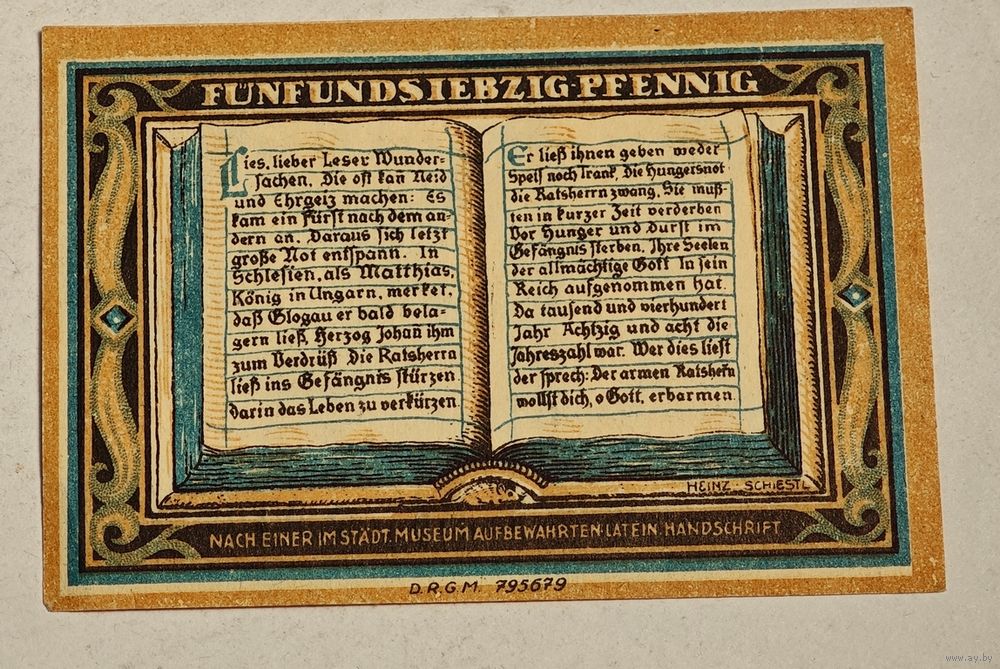 FÜNFUNDSIEBZIG·PFENNIG
Lies, lieber Leser Wunder=
sachen, Die oft kan̄ Neid
und Ehrgeiz machen: Es
kam ein Fürst nach dem an=
dern an. Daraus sich letzt
große Not entspan̄. In
Schlesien, als Matthias,
König in Ungarn, merket,
daß Glogau er bald bela=
gern ließ, Herzog Johan̄ ihm
zum Verdrüß Die Ratsherrn
ließ ins Gefängnis stürzen
darin das Leben zu verkürzen
Er ließ ihnen geben weder
Speis noch Trank, Die Hungersnot
die Ratsherrn zwang, Sie muß=
ten in kurzer Zeit verderben
Vor Hunger und Durst im
Gefängnis sterben. Ihre Seelen
der allmächtige Gott In sein
Reich aufgenommen hat.
Da tausend und vierhundert
Jahr Achtzig und acht die
Jahreszahl war. Wer dies liest
der sprech: Der armen Ratsherrn
wollst dich, o Gott, erbarmen.
HEINZ SCHIESTL
NACH EINER IM STÄDT. MUSEUM AUFBEWAHRTEN LATEIN. HANDSCHRIFT
D.R.G.M. 795679
www.ay.by